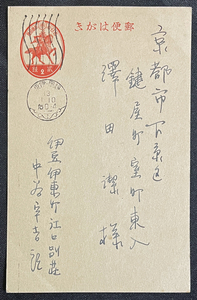 郵便はがき
京都市下京区
鍵屋町室町東入
澤田潔様
伊豆伊東町江口別荘
中谷宇吉郎